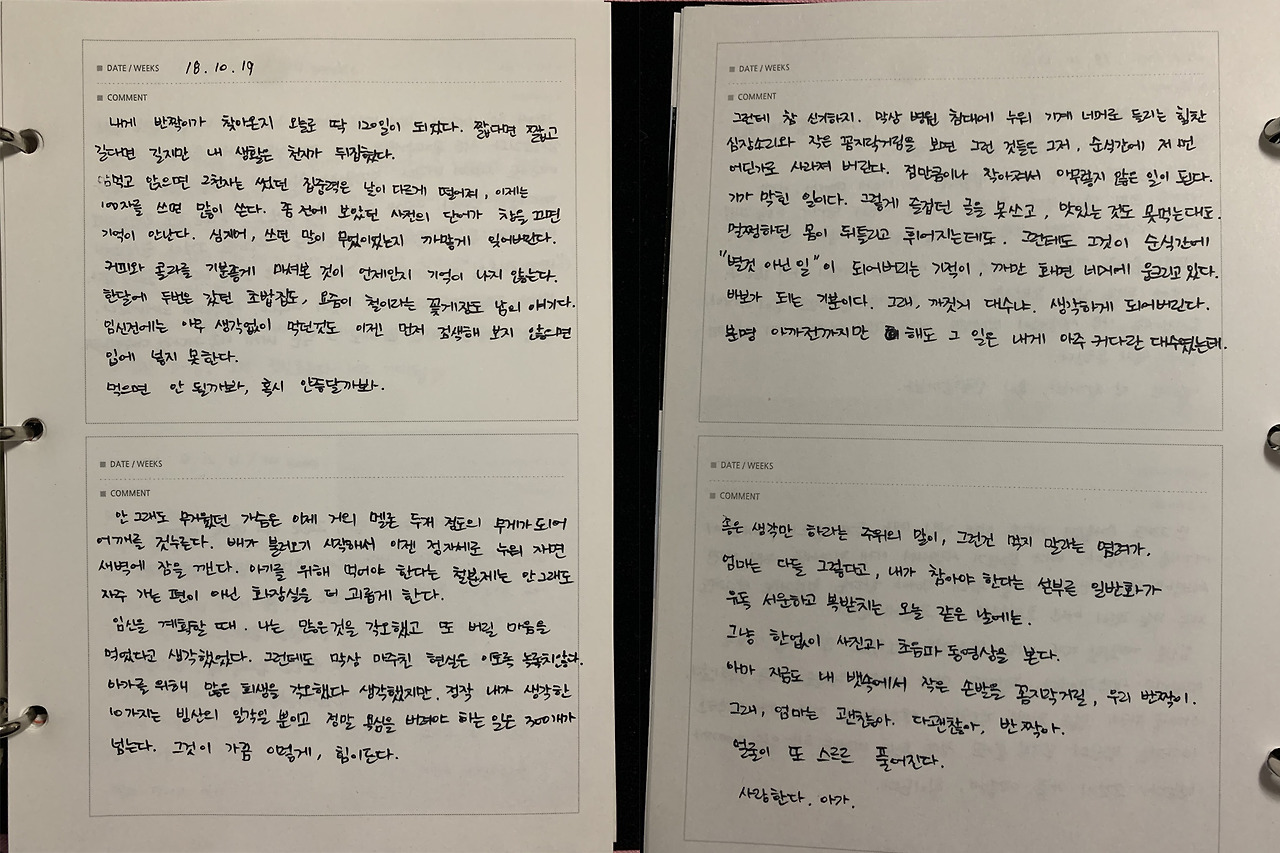 DATE / WEEKS 18.10.19
COMMENT
내게 반짝이가 찾아온지 오늘로 딱 120일이 되었다. 짧다면 짧고
길다면 길지만 내 생활은 천지가 뒤집혔다.
맘먹고 앉으면 2천자는 썼던 집중력은 날이 다르게 떨어져, 이제는
100자를 쓰면 많이 쓴다. 좀 전에 보았던 사전의 단어가 창을 끄면
기억이 안난다. 심지어, 쓰던 말이 무엇이었는지 까맣게 잊어버린다.
커피와 콜라를 기분좋게 마셔본 것이 언제인지 기억이 나지 않는다.
한달에 두번은 갔던 초밥집도, 요즘이 철이라는 꽃게집도 남의 얘기다.
임신전에는 아무 생각없이 먹던것도 이젠 먼저 검색해 보지 않으면
입에 넣지 못한다.
먹으면 안 될까봐, 혹시 안좋달까봐.
DATE / WEEKS
COMMENT
안 그래도 무거웠던 가슴은 이제 거의 멜론 두개 정도의 무게가 되어
어깨를 짓누른다. 배가 불러오기 시작해서 이젠 정자세로 누워 자면
새벽에 잠을 깬다. 아기를 위해 먹어야 한다는 철분제는 안그래도
자주 가는 편이 아닌 화장실을 더 괴롭게 한다.
임신을 계획할 때. 나는 많은것을 각오했고 또 버릴 마음을
먹었다고 생각했었다. 그런데도 막상 마주친 현실은 이토록 녹록치않다.
아가를 위해 많은 희생을 각오했다 생각했지만, 정작 내가 생각한
10가지는 빙산의 일각일 뿐이고 정말 욕심을 버려야 하는 일은 300개가
넘는다. 그것이 가끔 이렇게, 힘이든다.
DATE / WEEKS
COMMENT
그런데 참 신기하지. 막상 병원 침대에 누워 기계 너머로 들리는 힘찬
심장소리와 작은 꼼지락거림을 보면 그런 것들은 그저, 순식간에 저 먼
어딘가로 사라져 버린다. 점만큼이나 작아져서 아무렇지 않은 일이 된다.
기가 막힌 일이다. 그렇게 즐겁던 글을 못쓰고, 맛있는 것도 못먹는대도.
멀쩡하던 몸이 뒤틀리고 휘어지는데도. 그런데도 그것이 순식간에
"별것 아닌 일"이 되어버리는 기적이, 까만 화면 너머에 웅크리고 있다.
바보가 되는 기분이다. 그래, 까짓거 대수냐. 생각하게 되어버린다.
분명 아까전까지만 해도 그 일은 내게 아주 커다란 대수였는데.
DATE / WEEKS
COMMENT
좋은 생각만 하라는 주위의 말이, 그런건 먹지 말라는 염려가.
엄마는 다들 그렇다고, 내가 참아야 한다는 섣부른 일반화가
유독 서운하고 복받치는 오늘 같은 날에는.
그냥 한없이 사진과 초음파 동영상을 본다.
아마 지금도 내 뱃속에서 작은 손발을 꼼지락거릴, 우리 반짝이.
그래, 엄마는 괜찮아. 다괜찮아, 반짝아.
얼굴이 또 스르르 풀어진다.
사랑한다. 아가.